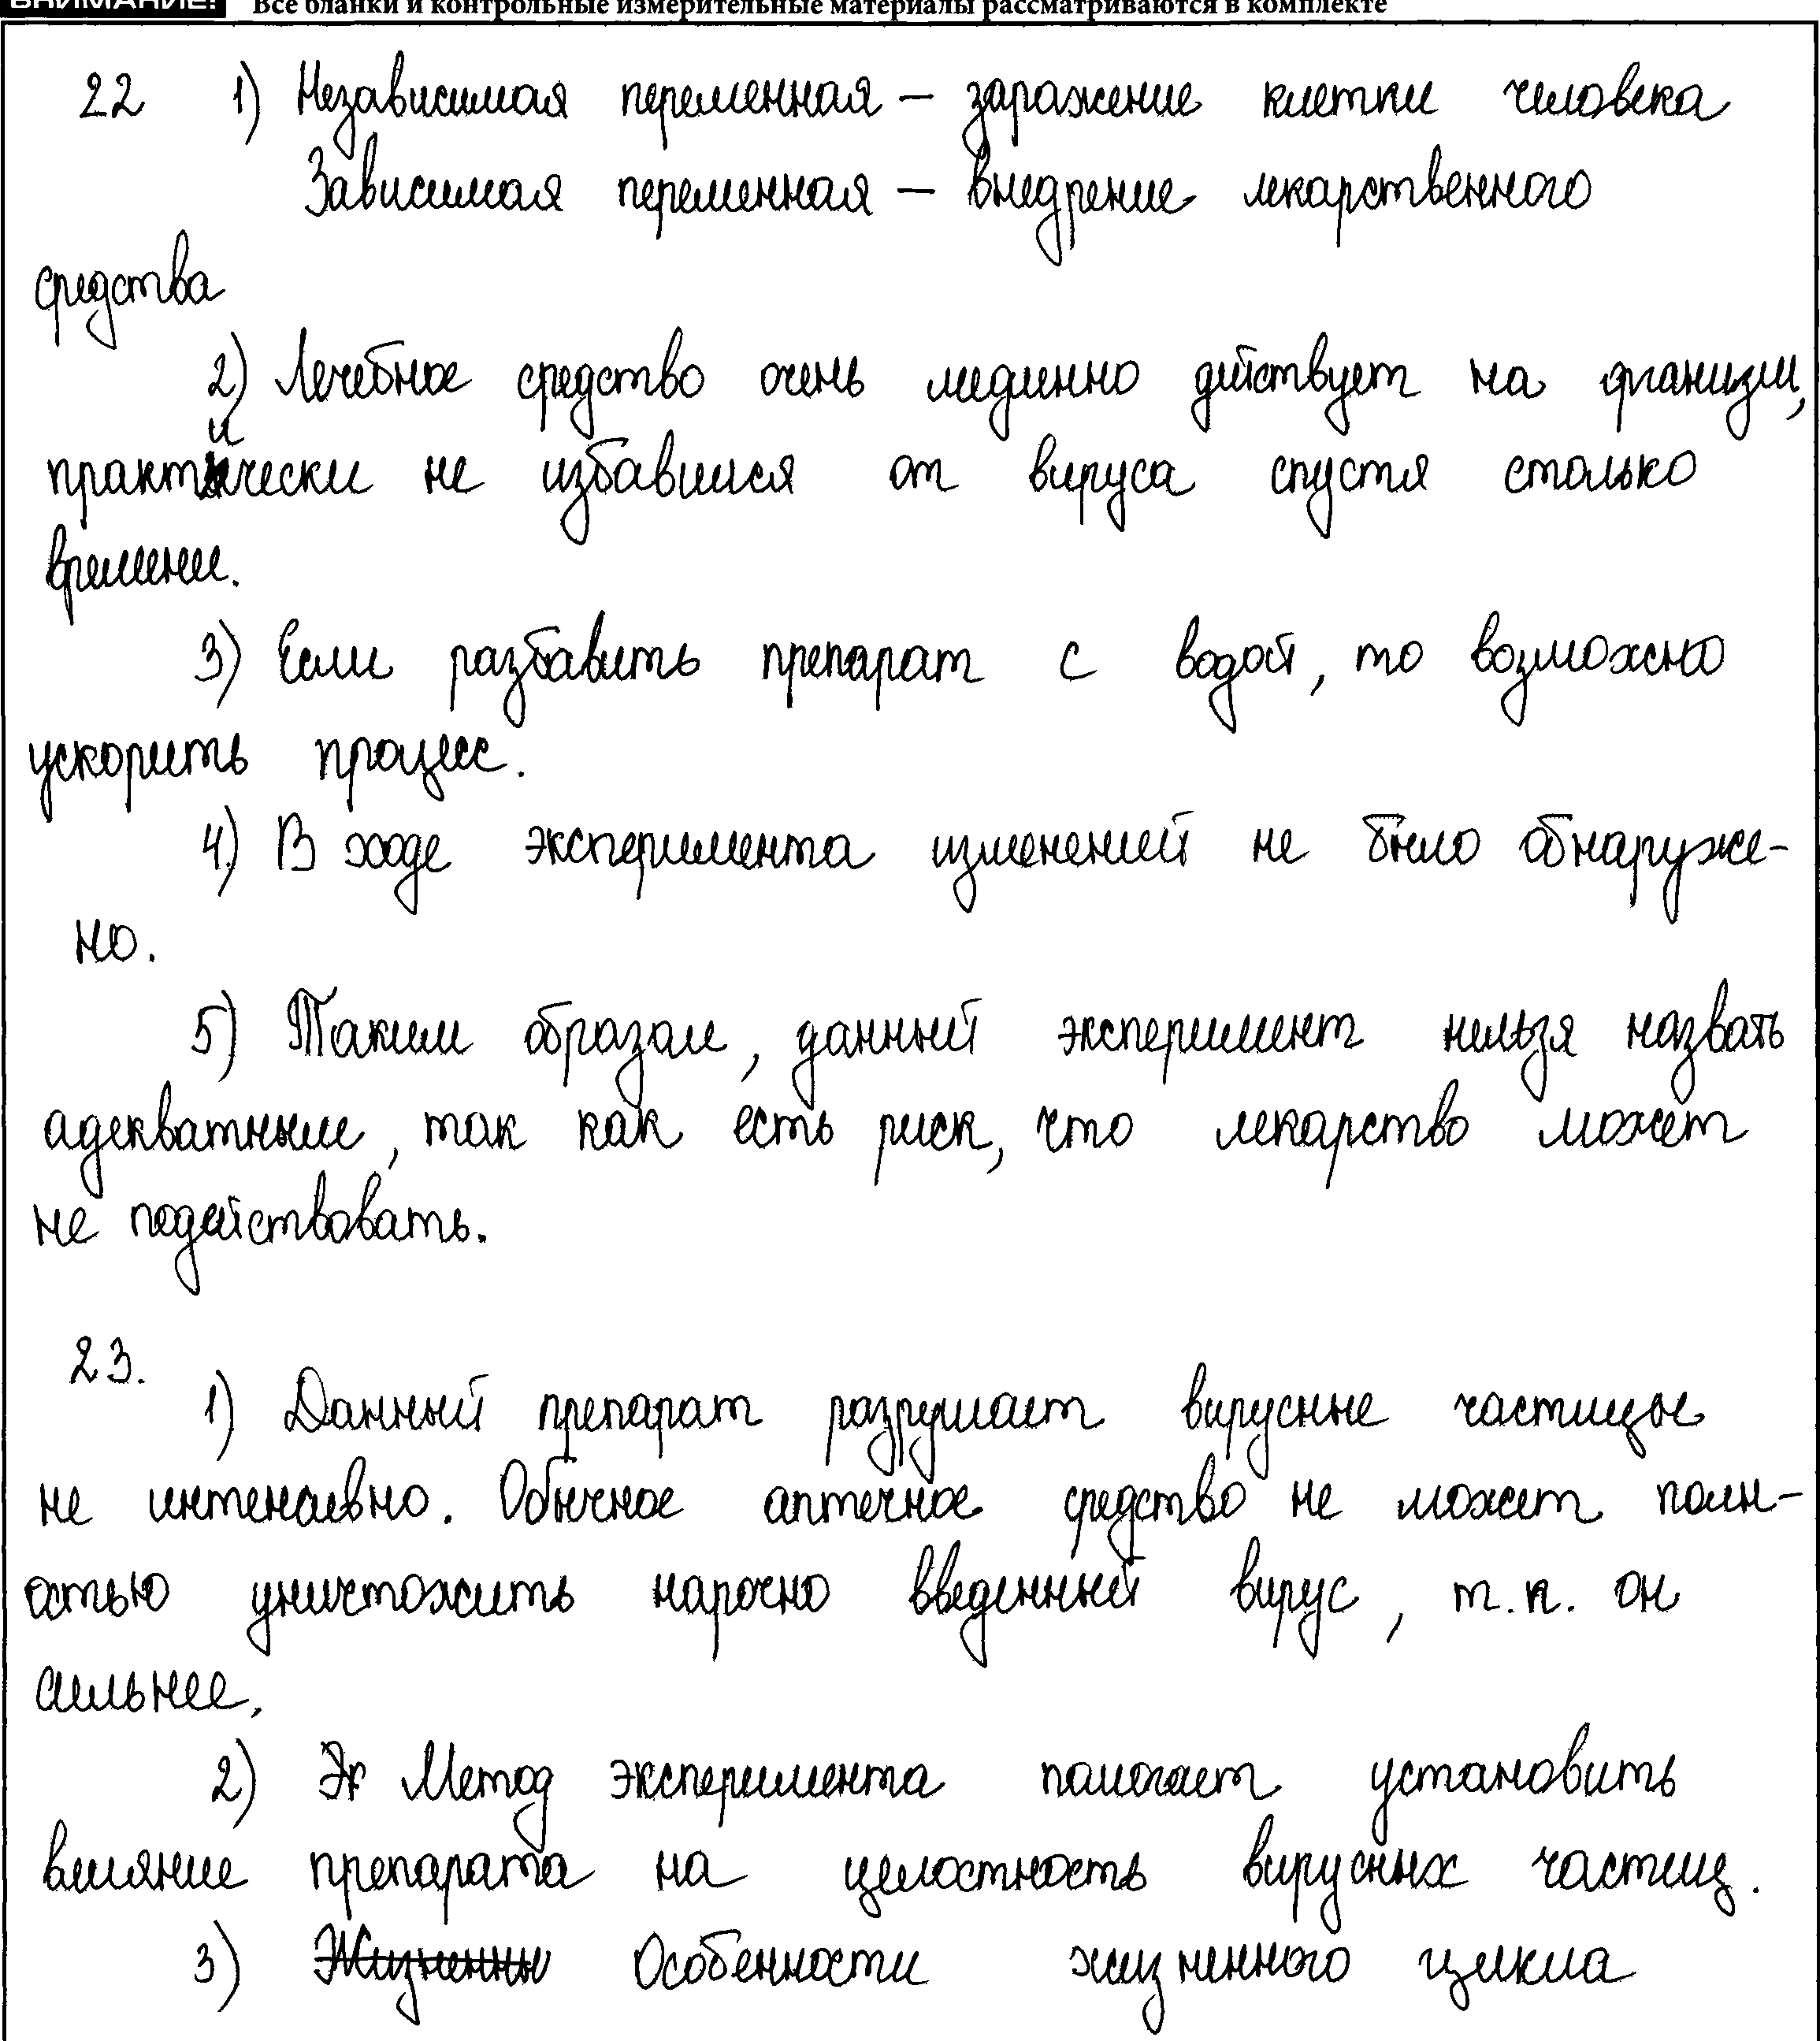 ВНИМАНИЕ! Все бланки и контрольные измерительные материалы рассматриваются в комплекте
22 1) Независимая переменная – заражение клетки человека
Зависимая переменная – внедрение лекарственного
средства
2) Лечебное средство очень медленно действует на организм,
практически не избавился от вируса спустя столько
времени.
3) Если разбавить препарат с водой, то возможно
ускорить процесс.
4) В ходе эксперимента изменений не было обнаруже-
но.
5) Таким образом, данный эксперимент нельзя назвать
адекватным, так как есть риск, что лекарство может
не подействовать.
23.
1) Данный препарат разрушает вирусные частицы
не интенсивно. Обычное аптечное средство не может полн-
остью уничтожить нарочно введенный вирус, т.к. он
сильнее.
2) Эк Метод эксперимента помогает установить
влияние препарата на целостность вирусных частиц.
3) Жизненны Особенности жизненного цикла